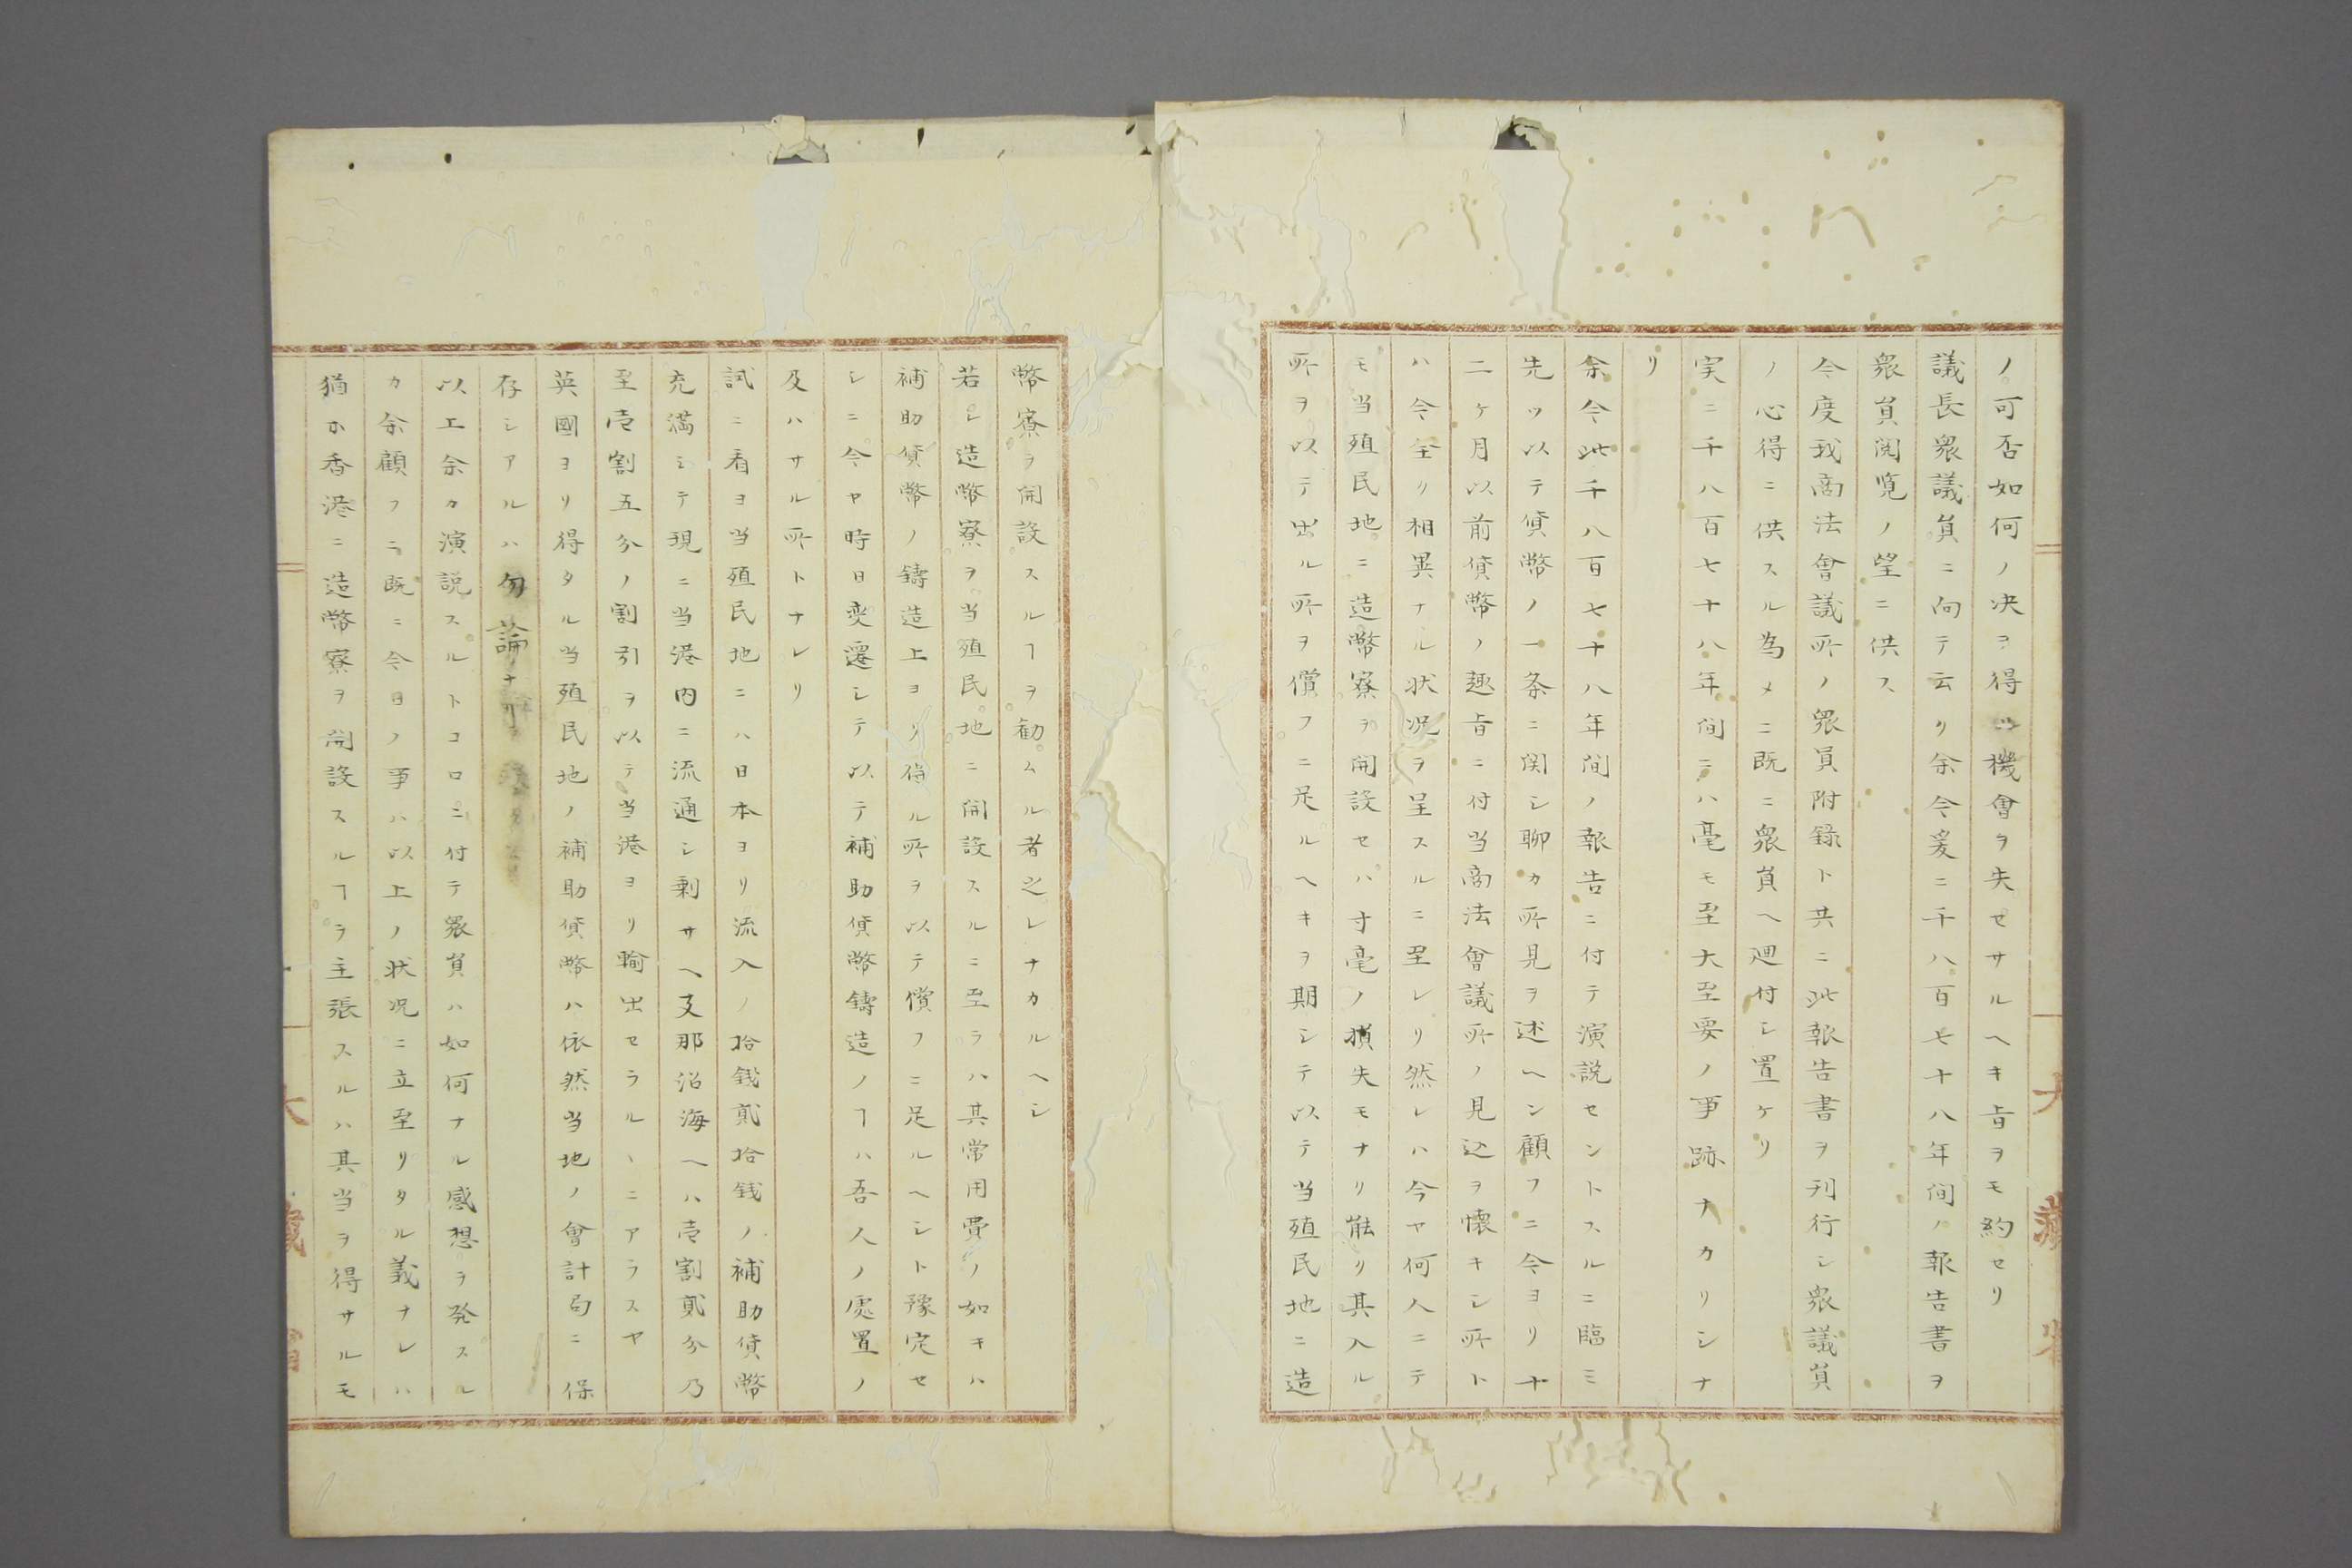 ノ可否如何ノ决ヲ得ル機會ヲ失セサルヘキ旨ヲモ約セリ
議長衆議員ニ向テ云リ余今爰ニ千八百七十八年间ノ報告書ヲ
衆員閲覧ノ望ニ供ス
今度我商法會議所ノ衆員附録ト共ニ此報告書ヲ刋行シ衆議員
ノ心得ニ供スル為メニ既ニ衆員ヘ廻付シ置ケリ
実ニ千八百七十八年间ニハ毫モ至大至要ノ事跡ナカリシナ
リ
余今此千八百七十八年间ノ報告ニ付テ演説セントスルニ臨ミ
先ツ以テ貨幣ノ一条ニ関シ聊カ所見ヲ述ヘン顧フニ今ヨリ十
二ケ月以前貨幣ノ趣旨ニ付当商法會議所ノ見込ヲ懐キシ所ト
ハ今全リ相異ナル状况ヲ呈スルニ至レリ然レハ今ヤ何人ニテ
モ当殖民地ニ造幣寮ヲ開設セハ寸毫ノ損失モナリ能リ其入ル
所ヲ以テ出ル所ヲ償フニ足ルヘキヲ期シテ以テ当殖民地ニ造
幣寮ヲ開設スルヿヲ勧ムル者之レナカルヘシ
若シ造幣寮ヲ当殖民地ニ開設スルニ至ラハ其常用費ノ如キハ
補助貨幣ノ鋳造上ヨリ得ル所ヲ以テ償フニ足ルヘシト豫定セ
シニ今ヤ時日変遷シテ以テ補助貨幣鋳造ノヿハ吾人ノ處置ノ
及ハサル所トナレリ
試ニ看ヨ当殖民地ニハ日本ヨリ流入ノ拾銭貳拾銭ノ補助貨幣
充満シテ現ニ当港内ニ流通シ剰サヘ支那沿海ヘハ壱割貳分乃
至壱割五分ノ割引ヲ以テ当港ヨリ輸出セラルヽニアラスヤ
英國ヨリ得タル当殖民地ノ補助貨幣ハ依然当地ノ會計局ニ保
存シアルハ勿論ナリ
以エ余カ演説スルトコロニ付テ衆員ハ如何ナル感想ヲ発スル
カ余顧フニ既ニ今日ノ事ハ以上ノ状况ニ立至リタル義ナレハ
猶ホ香港ニ造幣寮ヲ開設スルヿヲ主張スルハ其当ヲ得サルモ
大藏省
大藏省